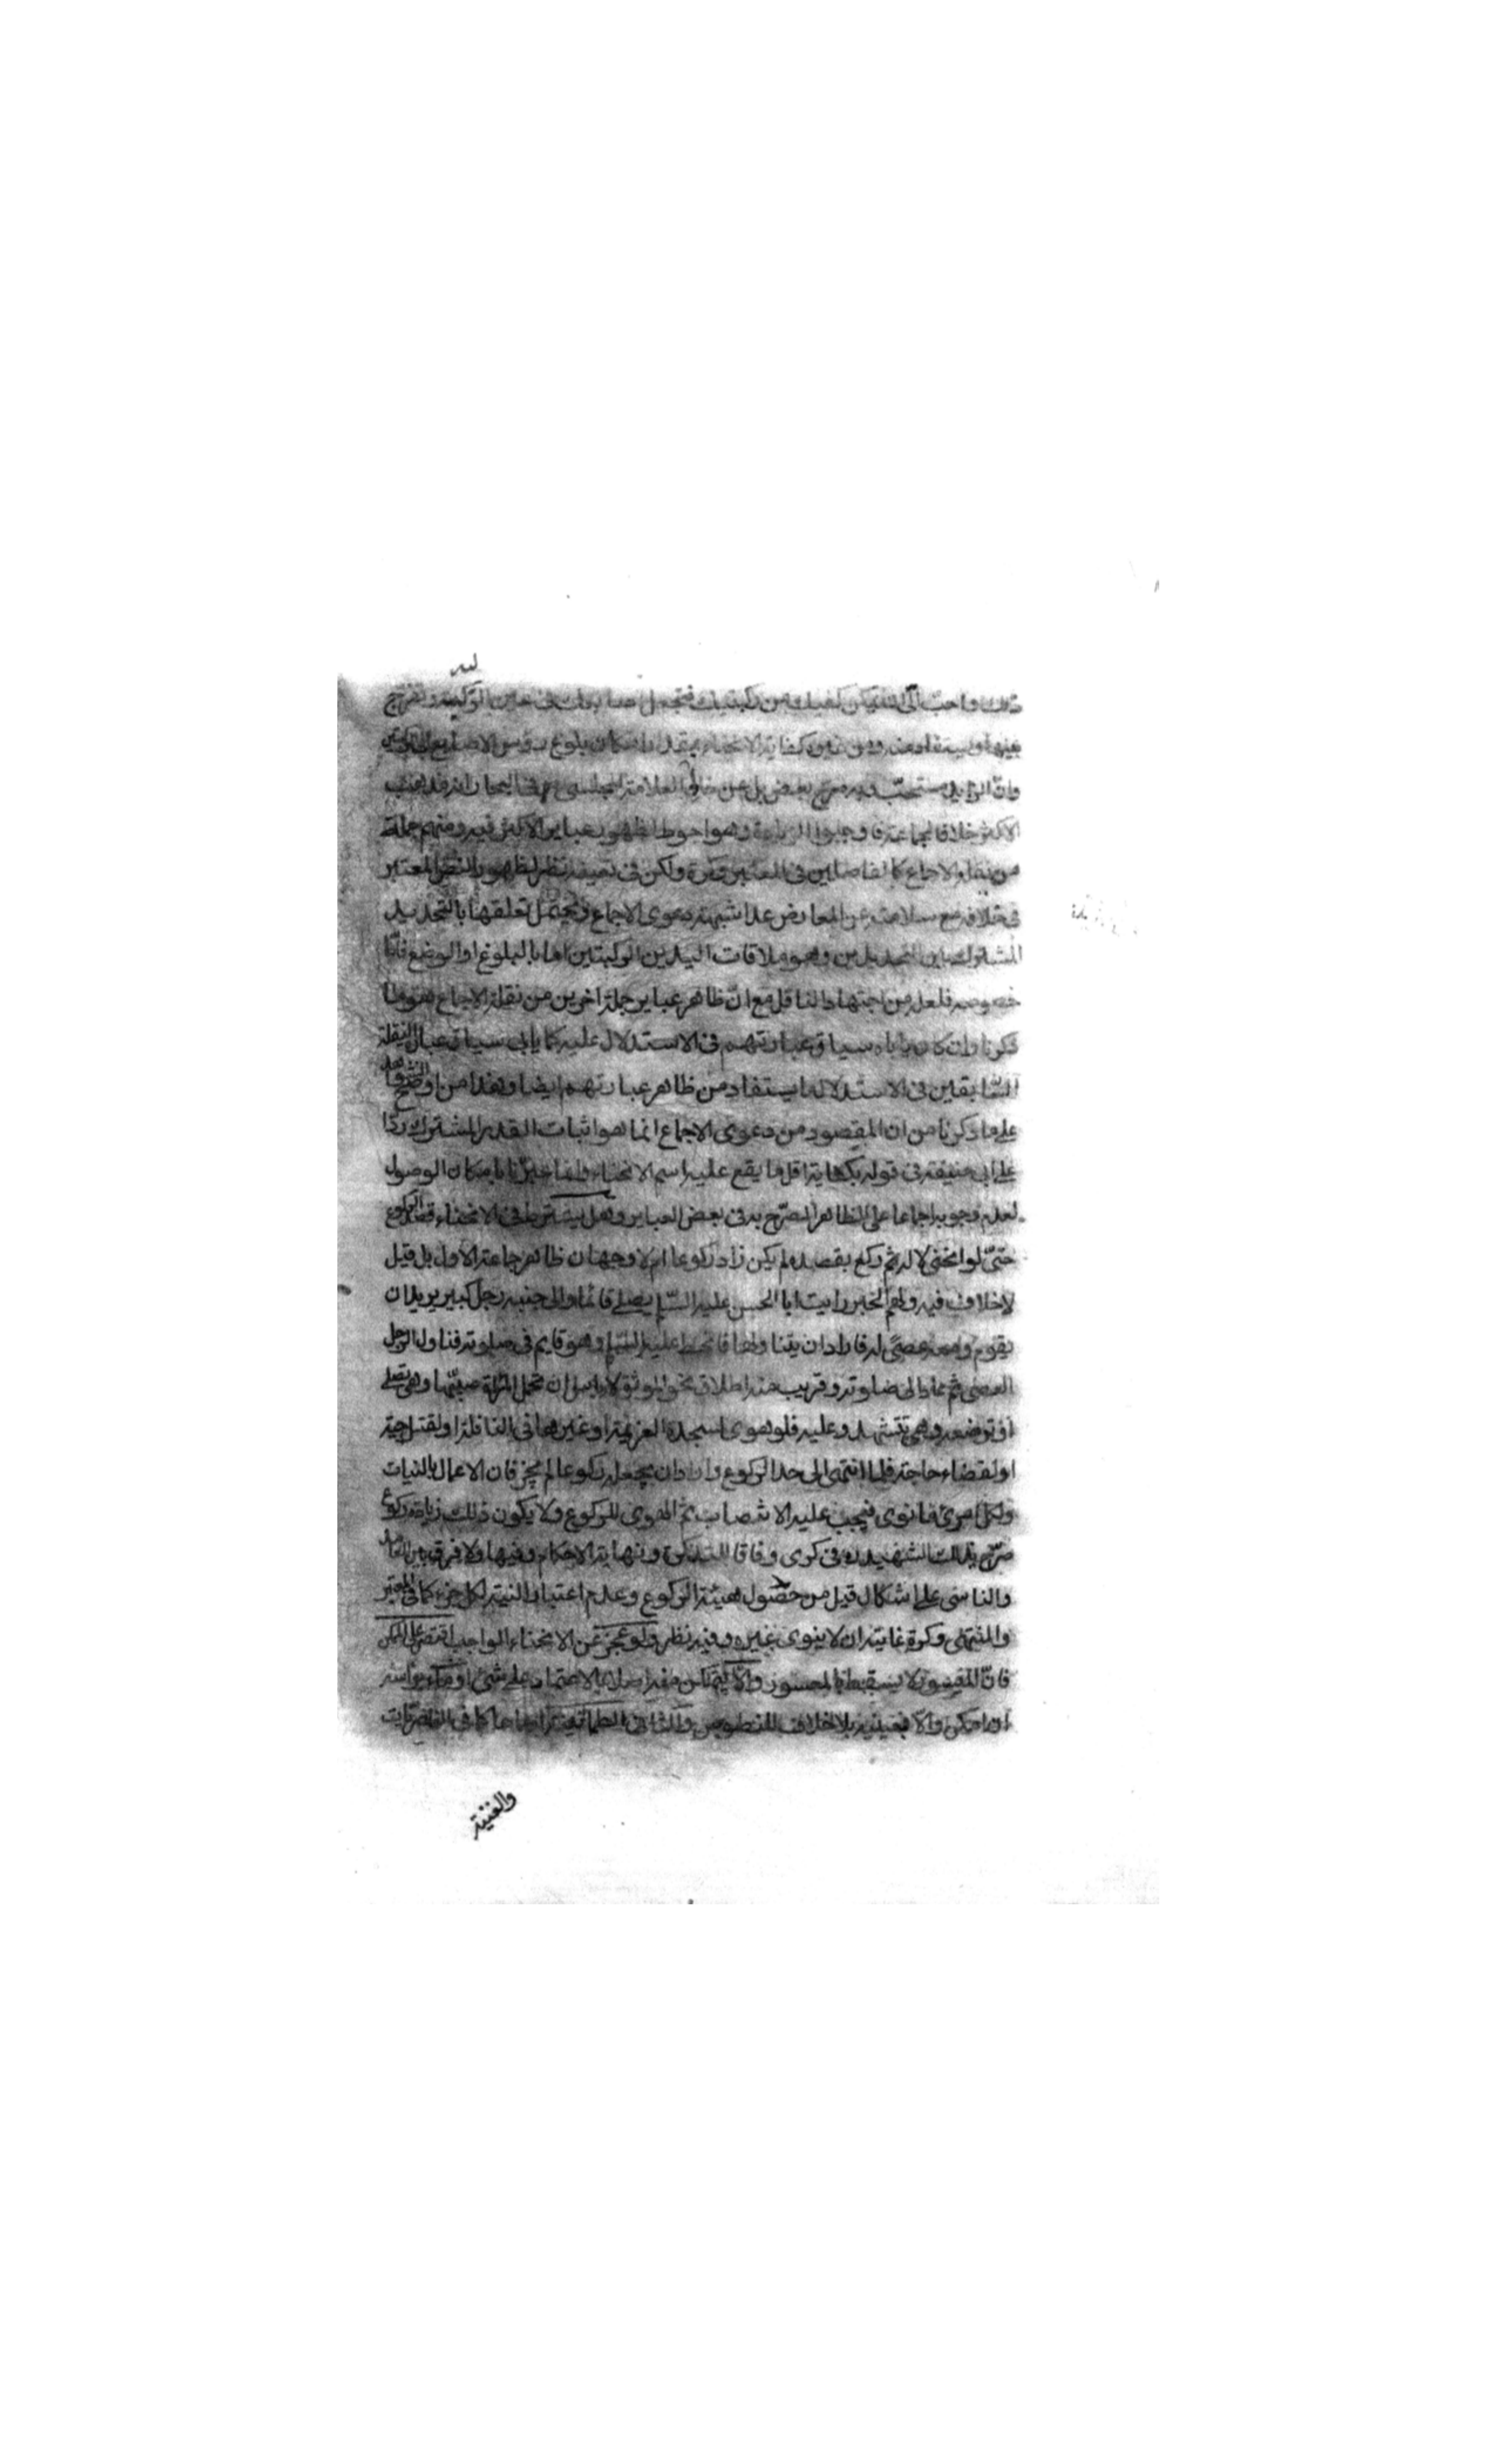 ذلك واحب الى ان تمكن كفيك من ركبتيك فتجعل اصابعك في عين الركبة وتفرج
بينها ويستفاد منه ومن غيره كفاية الانحناء بمقدار امكان بلوغ رؤس الاصابع الى الركبتين
وان الزايد مستحب وبه صرح بعض بل عن خالى العلامة المجلسى في البحار انه مذهب
الاكثر خلافا لجماعة فاوجبوا الزيادة وهو احوط لظهور عباير الاكثر فيه ومنهم جملة
من نقلة الاجماع كالفاضلين في المعتبر وكرة ولكن في تعيينه نظر لظهور النص المعتبر
في خلافه مع سلامته عن المعارض عدا شبهة دعوى الاجماع ويحتمل تعلقها بالتحديد
المشترك بين التحديدين وهو ملاقات اليدين الركبتين اما بالبلوغ او الوضع فاما
خصوصه فلعله من اجتهاد الناقل مع ان ظاهر عباير جملة اخرين من نقلة الاجماع هو ما
ذكرنا وان كان ياباه سياق عباراتهم في الاستدلال عليه كما يابى سياق عباير النقلة
السابقين في الاستدلال ما يستفاد من ظاهر عباراتهم ايضا وهذا من اوضح الشواهد
على ما ذكرنا من ان المقصود من دعوى الاجماع انما هو اثبات القدر المشترك ردا
على ابي حنيفة في قوله بكفاية اقل ما يقع عليه اسم الانحناء وانما عبرنا بامكان الوصول
لعدم وجوبه اجماعا على الظاهر المصرح به في بعض العباير وهل يشترط في الانحناء قصد الركوع
حتى لو انحنى لا له ثم ركع بقصده لم يكن زاد ركوعا ام لا وجهان ظاهر جماعة الاول بل قيل
لا خلاف فيه ولهم الخبر رايت ابا الحسن عليه السلام يصلي قائما والى جنبه رجل كبير يريد ان
يقوم ومعه عصى له فاراد ان يتناولها فانحط عليه السلام وهو قايم في صلوته فناول الرجل
العصى ثم عاد الى صلوته وقريب منه اطلاق نحو الموثق لا باس ان تحمل المراة صبيها وهي تصلي
او ترضعه وهي تتشهد وعليه فلو هوى لسجدة العزيمة او غيرها في النافلة او لقتل حية
او لقضاء حاجة فلما انتهى الى حد الركوع واراد ان يجعله ركوعا لم يجز فان الاعمال بالنيات
ولكل امرئ ما نوى فيجب عليه الانتصاب ثم الهوى للركوع ولا يكون ذلك زيادة ركوع
صرح بذلك الشهيد ره في كرى وفاقا للتذكرة ونهاية الاحكام وفيها ولا فرق بين العامد
والناسى على اشكال قيل من حصول هيئة الركوع وعدم اعتبار النية لكل جزء كما في المعتبر
والمنتهى وكرة غايته ان لا ينوى غيره وفيه نظر ولو عجز عن الانحناء الواجب اقتصر على الممكن
فان الميسور لا يسقط بالمعسور والا يتمكن منه اصلا بالاعتماد على شئ اومأ براسه
ان امكن والا فبعينيه بلا خلاف للنصوص والثاني الطمانينة اجماعا كما في الناصريات
والغنية